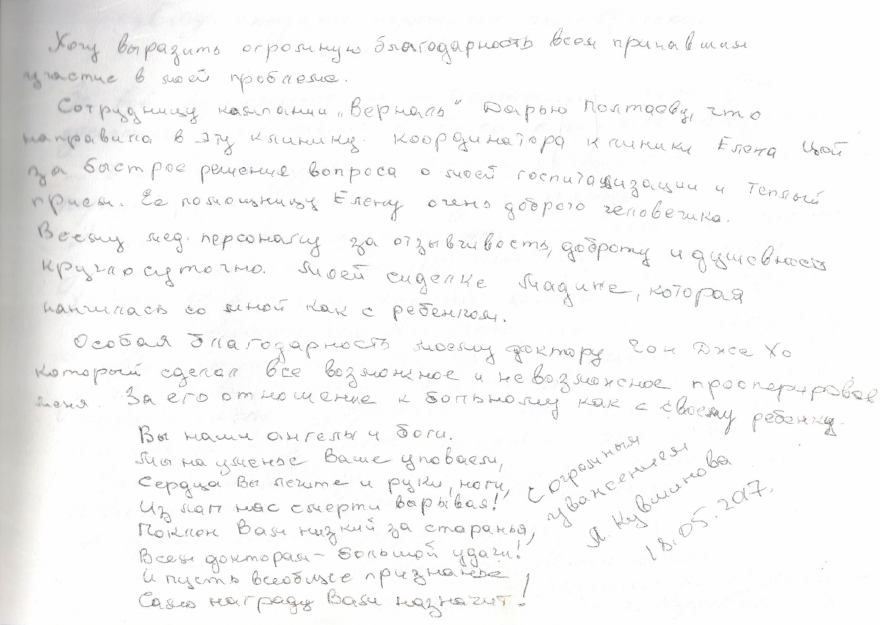 Хочу выразить огромную благодарность всем принавшим
участие в моей проблеме.
Сотрудницу кампании „Верналь" Дарью Полтаеву, что
направила в эту клинику. Координатора клиники Елена Цой
за быстрое решение вопроса о моей госпитализации и теплый
прием. Ее помощницу Елену очень доброго человечика.
Всему мед. персоналу за отзывчивость, доброту и душевность
круглосуточно. Моей сиделке Мадине, которая
нанчилась со мной как с ребенком.
Особая благодарность моему доктору Чон Дже Хо
который сделал все возможное и невозможное прооперировав
меня. За его отношение к больному как с своему ребенку.
Вы наши ангелы и боги.
Мы на уменье Ваше уповаем,
Сердца Вы лечите и руки, ноги,
Из лап нас смерти вырывая!
Поклон Вам низкий за старанья,
Всем докторам – большой удачи!
И пусть всеобщее признанье
Само награду Вам назначит!
С огромным
уважением
Л. Кувшинова
18.05.2017.